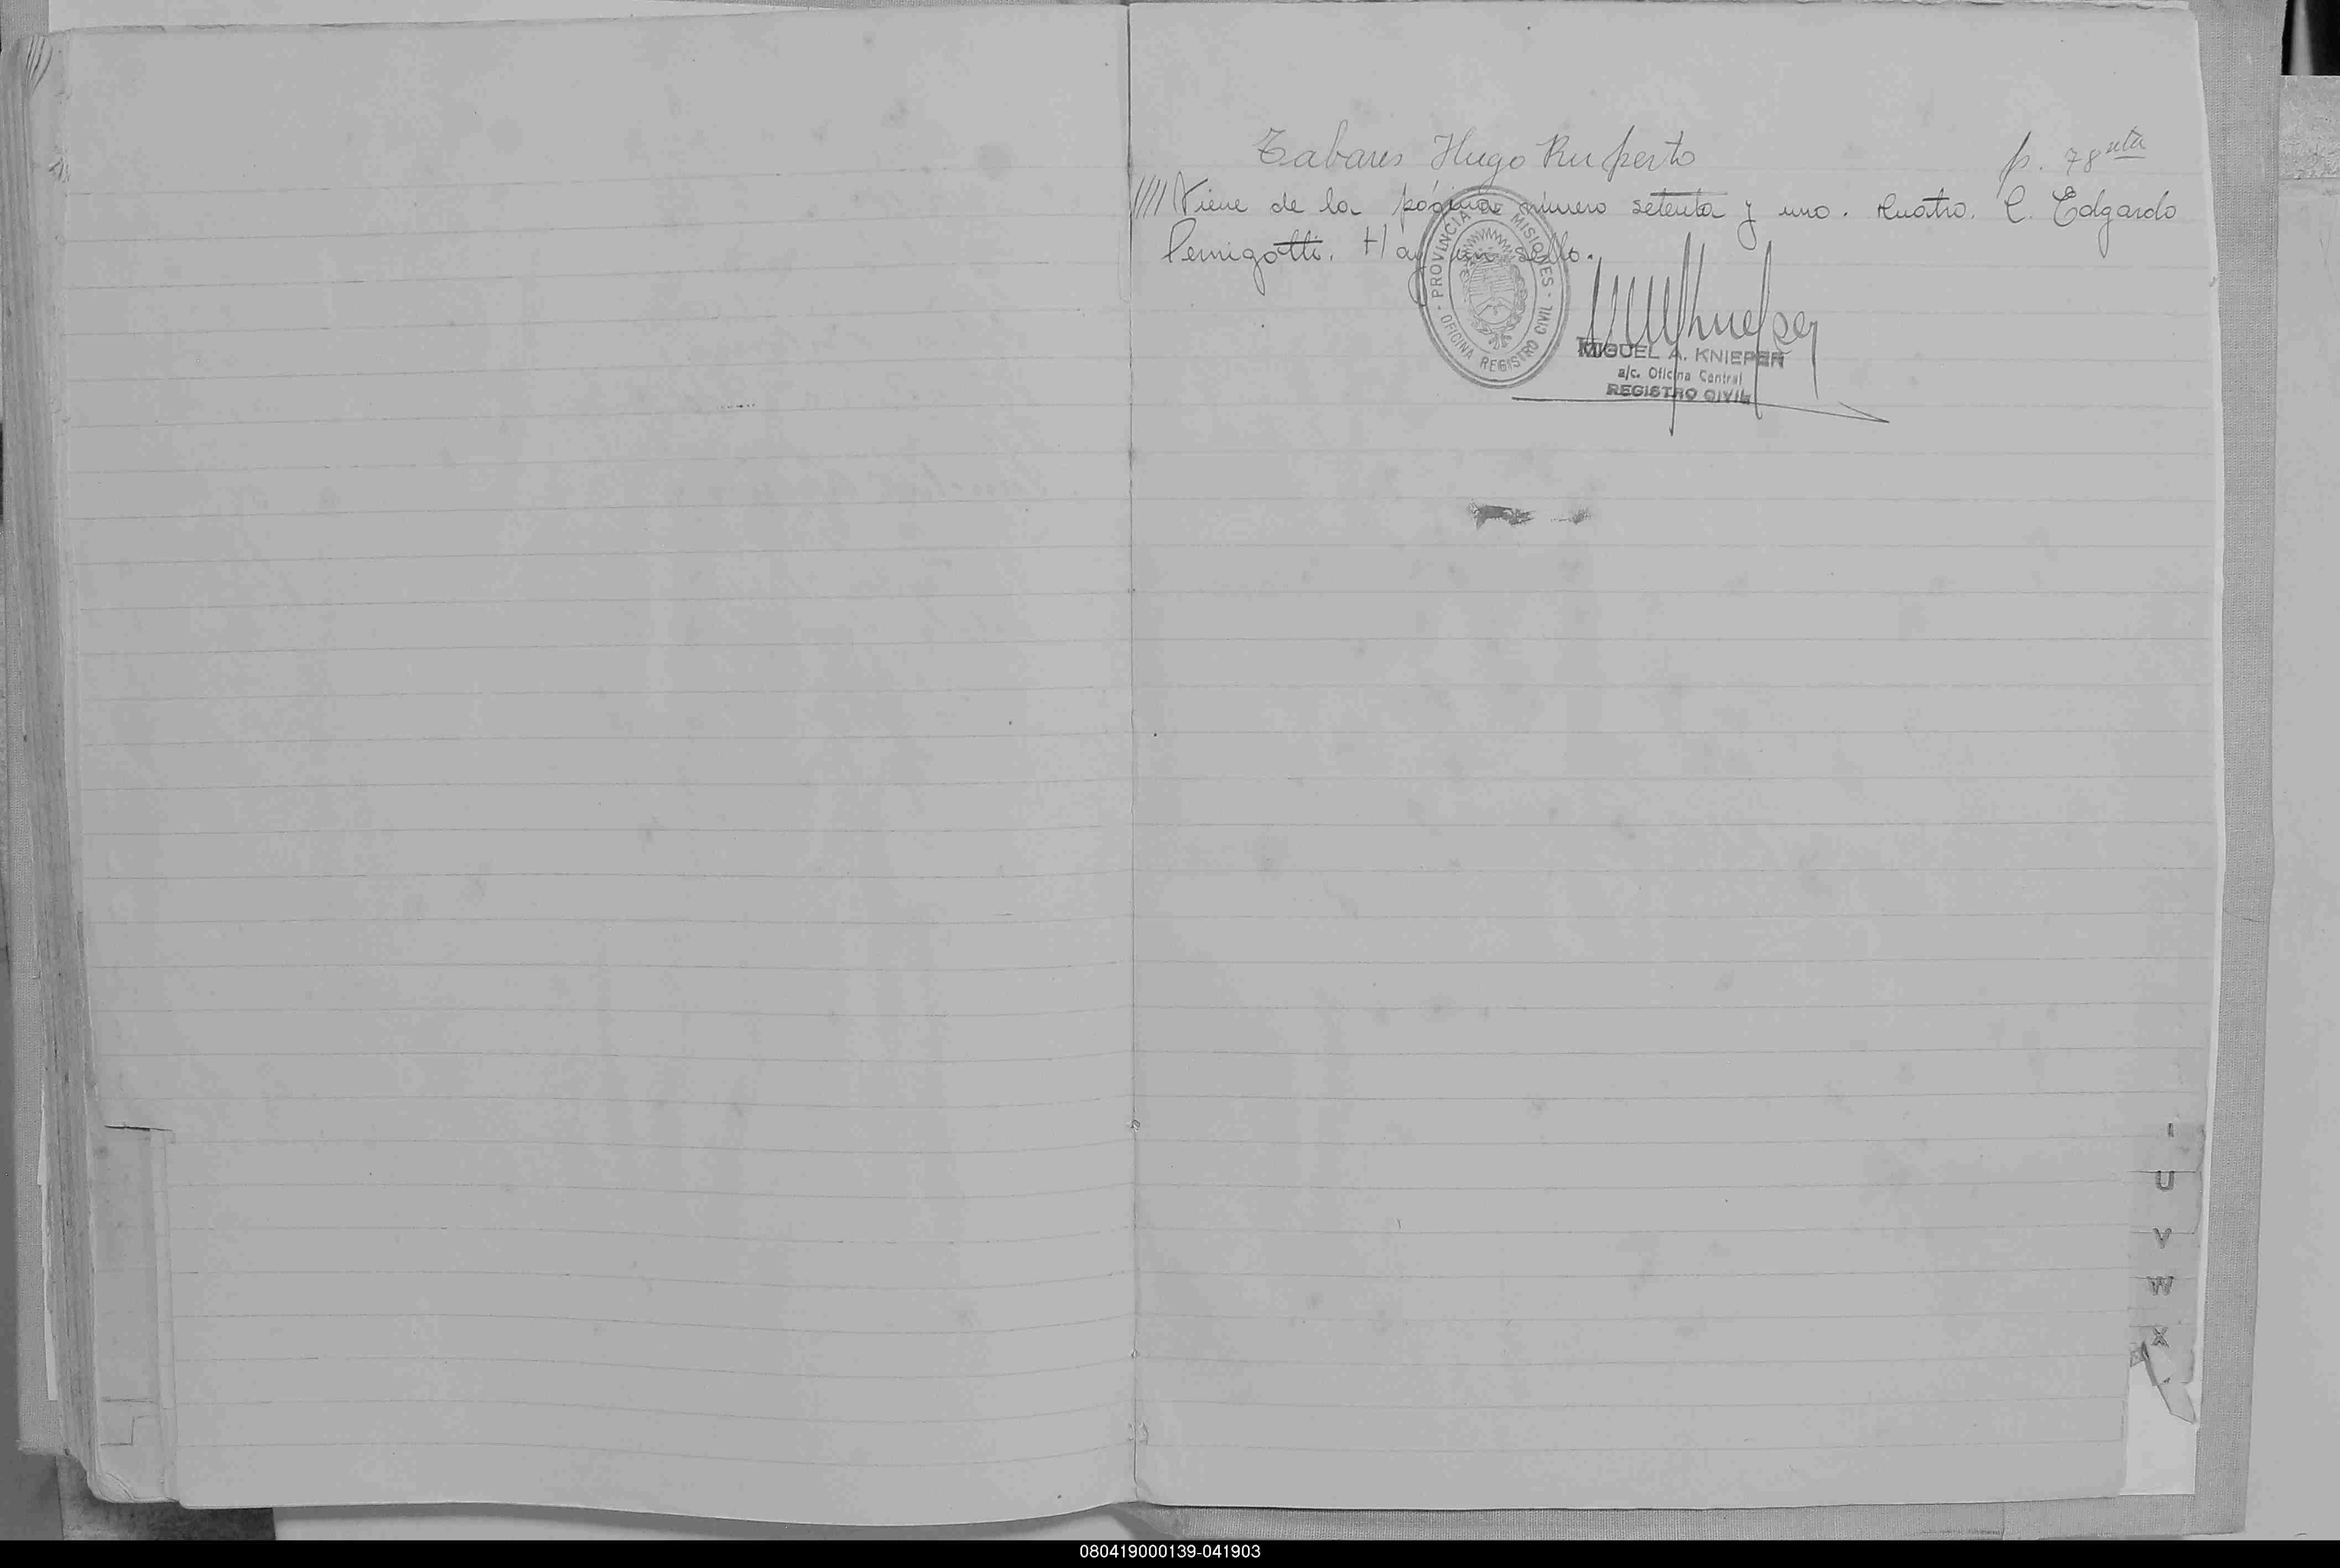 Tabares Hugo Ruperto p. 78 vta
//// Viene de la página número setenta y uno. Cuatro. C. Edgardo
Pernigotti. Hay un sello.
PROVINCIA DE MISIONES - OFICINA REGISTRO CIVIL -
MIGUEL A. KNIEPER
a/c. Oficina Central
REGISTRO CIVIL
U
V
W
X
080419000139-041903